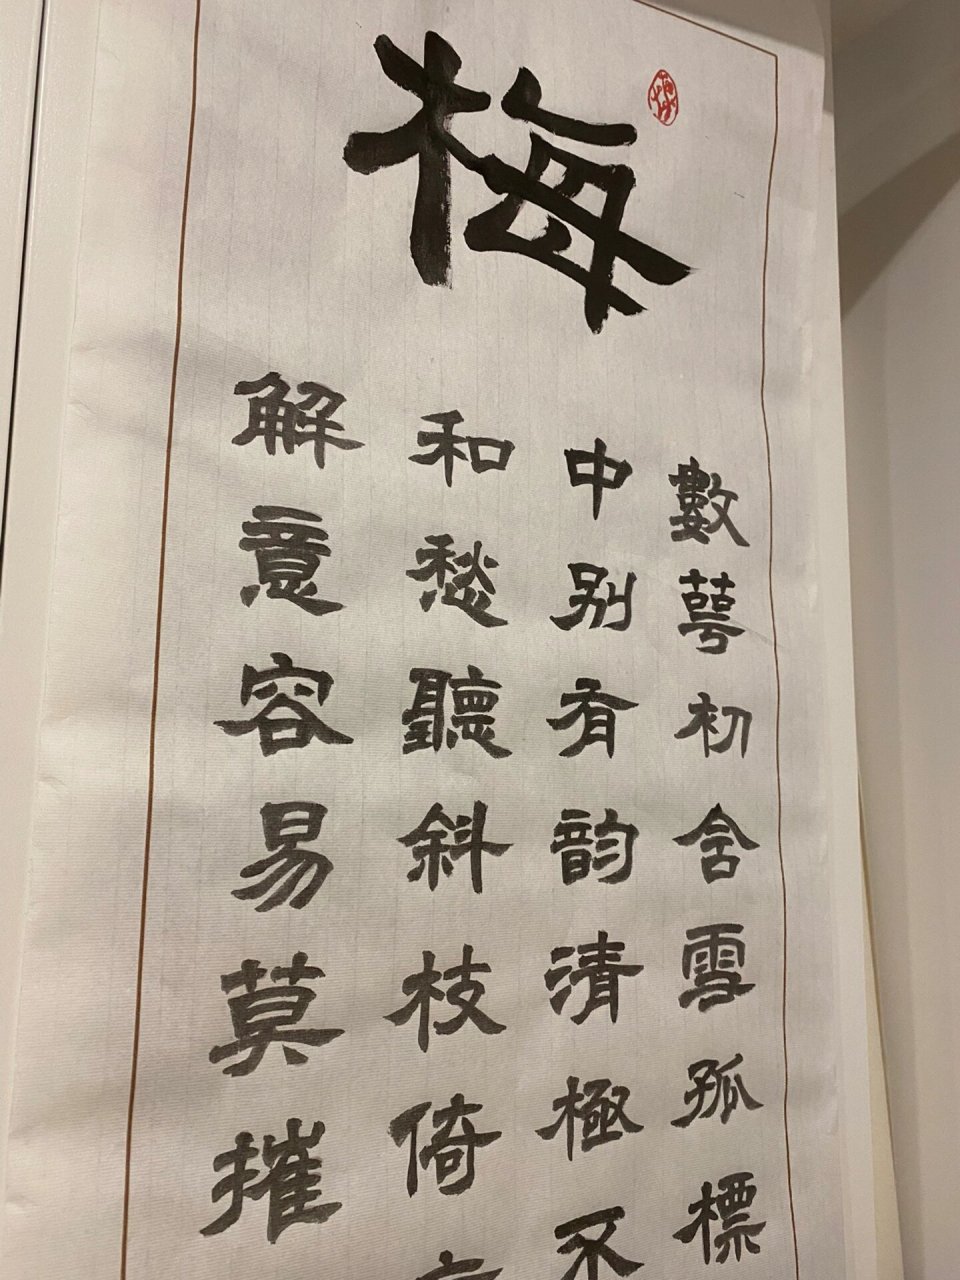 梅
數萼初含雪孤標
中别有韵清極不
和愁聽斜枝倚
解意容易莫摧